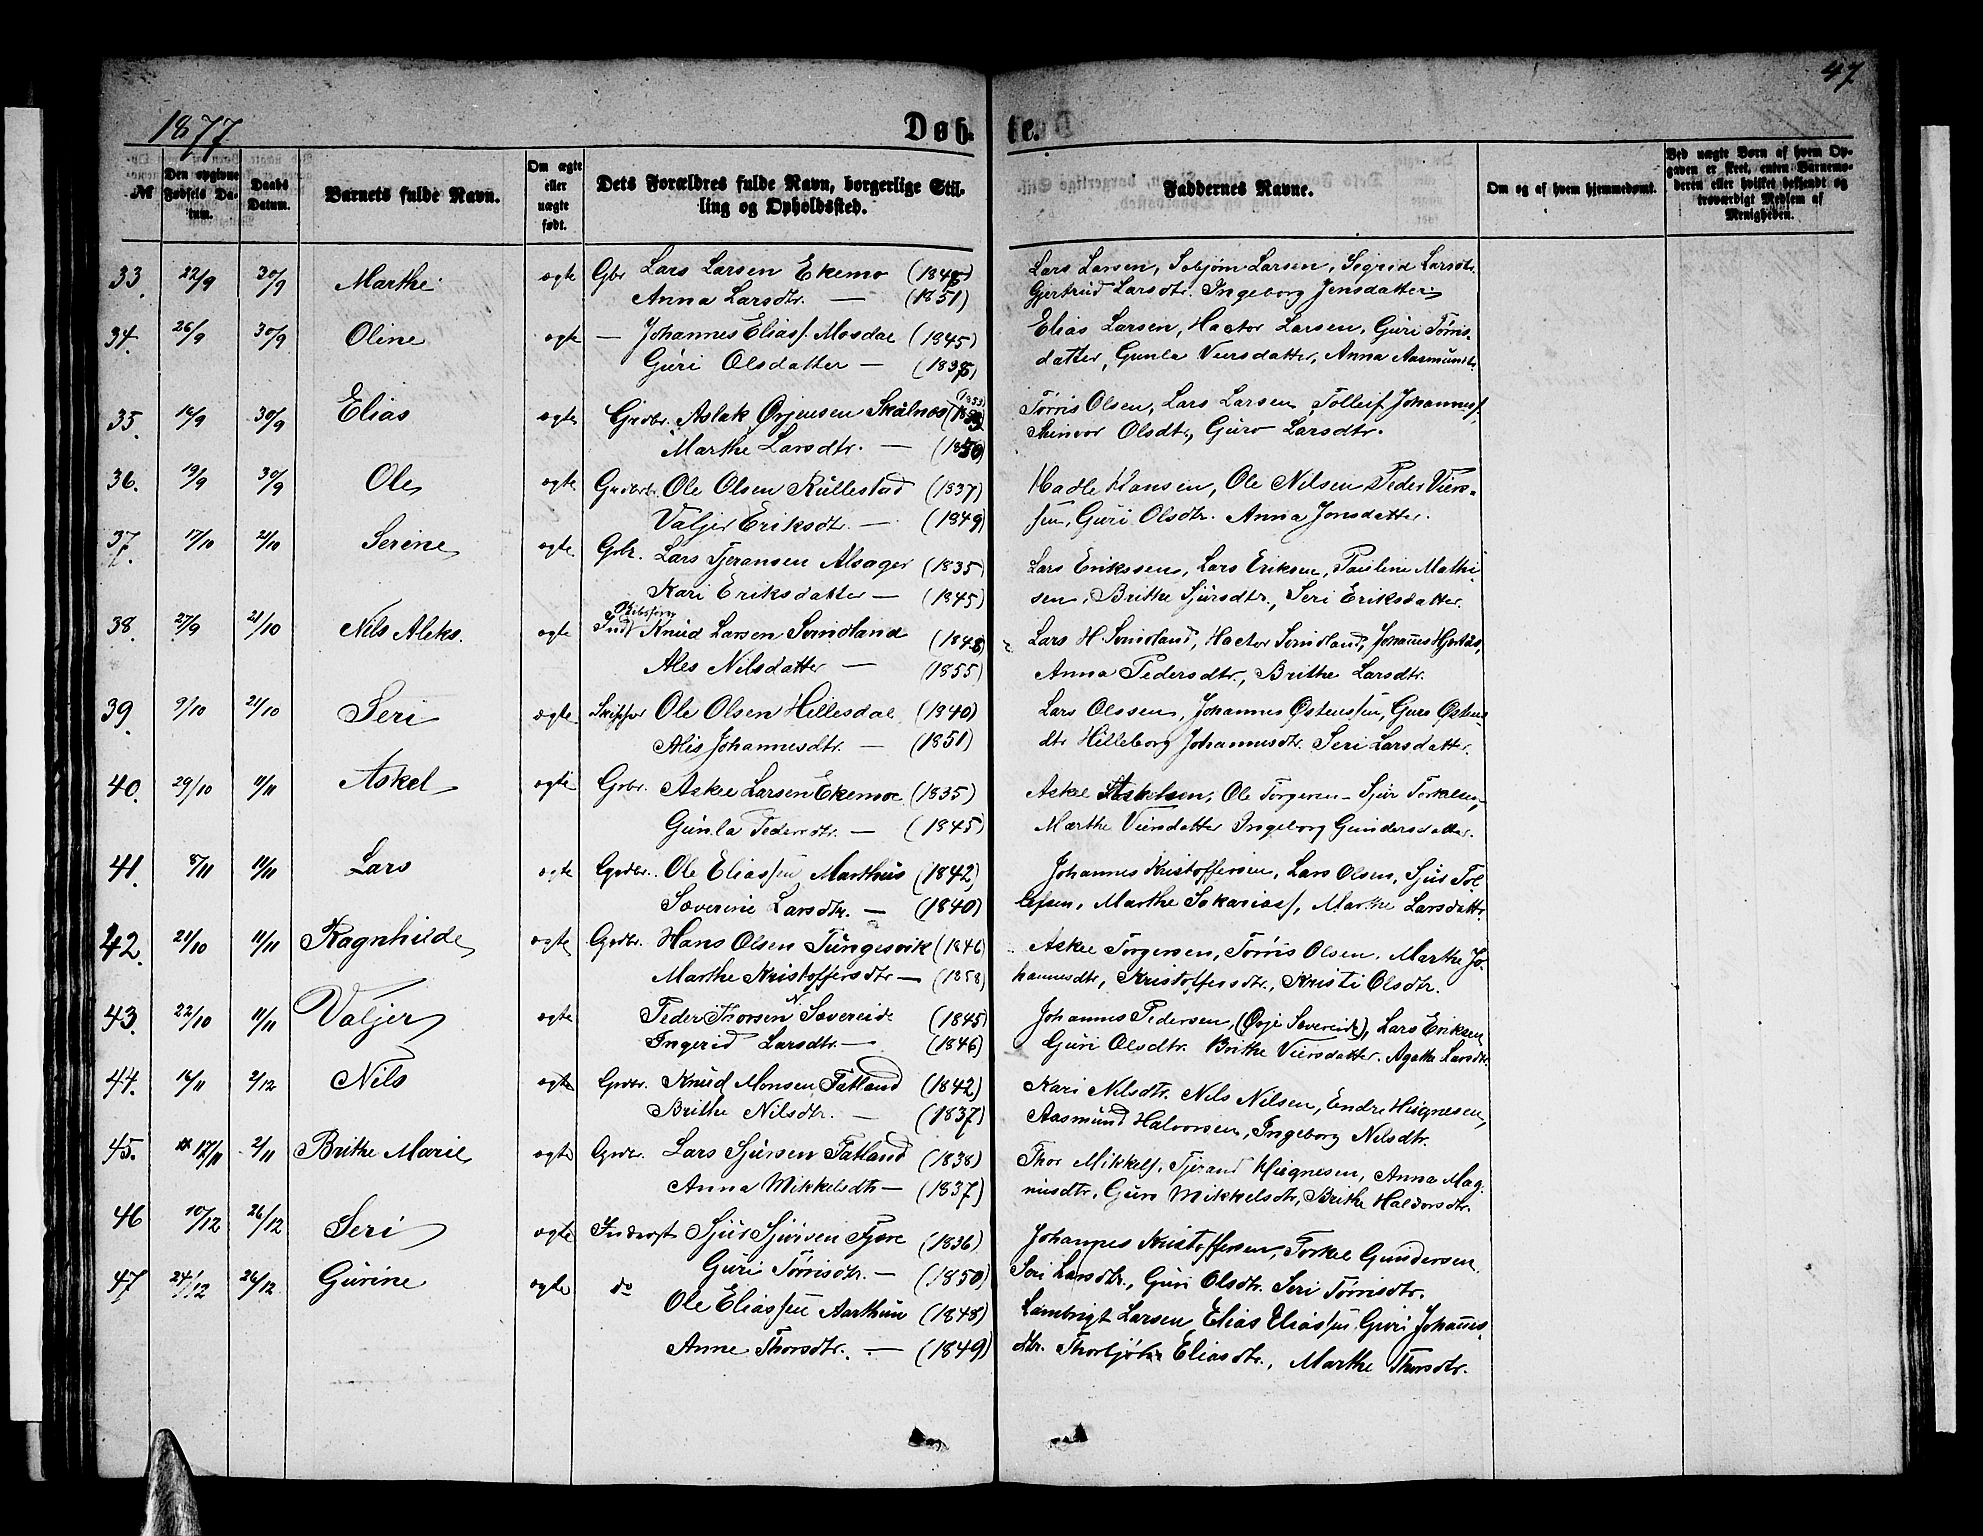 47
1877
Døb-
te.
№
Den opgivne Fødsels Datum.
Daabs Datum.
Barnets fulde Navn.
Om ægte eller uægte født.
Dets Forældres fulde Navn, borgerlige Stilling og Opholdssted.
Faddernes Navne.
Om og af hvem hjemmedøbt.
Ved uægte Børn af hvem Opgaven er skeet, enten Barnemoderen eller hvilket bekjendt og troværdigt Medlem af Menigheden.
33. 22/9 30/9 Marthe ægte Gbr. Lars Larsen Ekemo
Anna Larsdtr. — (1851)
Lars Larsen, Larsen, Sigrid Larsdtr.
Gjertrud Larsdtr. Ingeborg Jensdatter
34. 26/9 30/9 Oline ægte — Johannes Eliass. Mosdal (1845)
Guri Olsdatter —
Elias Larsen, Hactor Larsen, Guri Tørris-
datter, Gunla Viersdatter, Anna Aasmunds
35. 16/9 30/9 Elias ægte Grdbr. Aslak Ørjensen Skålnes (1853)
Marthe Larsdtr. —
Tørris Olsen, Lars Larsen, Tolleif Johanness.
Olsdtr., Guro Larsdtr.
36. 19/9 30/9 Ole ægte Grdbr. Ole Olsen Rullestad (1837)
Valjer Eriksdtr. — (1849)
Hadle Hansen, Ole Nilsen, Peder Viers-
sen, Guri Olsdtr. Anna Jonsdatter.
37. 17/10 21/10 Serine ægte Grbr. Lars Tjeransen Alsager (1835)
Kari Eriksdatter — (1845)
Lars Erikssen, Lars Eriksen, Pauline Mathi-
sen, Brithe Sjursdtr., Seri Eriksdatter.
38. 27/9 21/10 Nils Aleks. ægte Ind. Knud Larsen Sundland (1848)
Ales Nilsdatter — (1855)
Lars H. Sundland, Hactor Sundland, Johannes
Anna Pedersdtr., Brithe Larsdtr.
39. 9/10 21/10 Seri ægte Skipper Ole Olsen Hillesdal (1840)
Alis Johannesdtr. — (1851)
Lars Olssen, Johannes Østenssen, Guro Østens-
dtr Hilleborg Johannesdtr. Seri Larsdatter.
40. 29/10 11/11 Askel ægte Grbr. Askel Larsen Ekemoe (1835)
Gunla Pedersdtr. — (1845)
Askel Askelsen, Ole Torgersen, Sjur Torkelsen
Marthe Viersdatter Ingeborg Gundersdatter.
41. 8/11 11/11 Lars ægte Grdbr. Ole Eliassen Marthus (1842)
Severine Larsdtr. — (1840)
Johannes Kristoffersen, Lars Olsen, Sjur Tol-
lefsen, Marthe Sakariass, Marthe Larsdattr
42. 21/10 11/11 Ragnhilde ægte Grdbr. Hans Olsen Tungesvik (1846)
Marthe Kristoffersdtr — (1858)
Askel Torgersen, Tørris Olsen, Marthe Jo-
hannesdtr, Kristoffersdtr., Kristi Olsdtr.
43. 22/10 11/11 Valjer ægte Peder Thorsen N Sævereide (1845)
Ingerid Larsdtr. — (1846)
Johannes Pedersen, (Øvre Sævereide), Lars Eriksen
Guri Olsdtr. Brithe Viersdatter. Agatha Larsdtr.
44. 16/11 2/12 Nils ægte Grdbr. Knud Monsen Fatland (1842)
Brithe Nilsdtr. — (1837)
Kari Nilsdtr. Nils Nilsen, Endre Hignesen,
Aasmund Halvorsen, Ingeborg Nilsdtr.
45. 17/11 2/11 Brithe Marie ægte Grdbr. Lars Sjursen Fatland (1838)
Anna Mikkelsdtr — (1837)
Thor Mikkels, Tjerand Hignesen, Anna Mag-
nusdtr, Guro Mikkelsdtr, Brithe Haldorsdtr.
46 10/12 26/12 Seri ægte Inderst Sjur Sjursen Fjære (1836)
Guri Tørrisdtr. — (1850)
Johannes Kristoffersen, Torkel Gundersen
Seri Larsdtr., Guri Olsdtr. Seri Tørrisdtr.
47 24/12 26/12 Gurine ægte do Ole Eliassen Aarthun (1848)
Anne Thorsdtr. — (1849)
Lambrigt Larsen, Elias Eliassen Guri Johannes-
dtr. Eliasdtr., Marthe Thorsdtr.